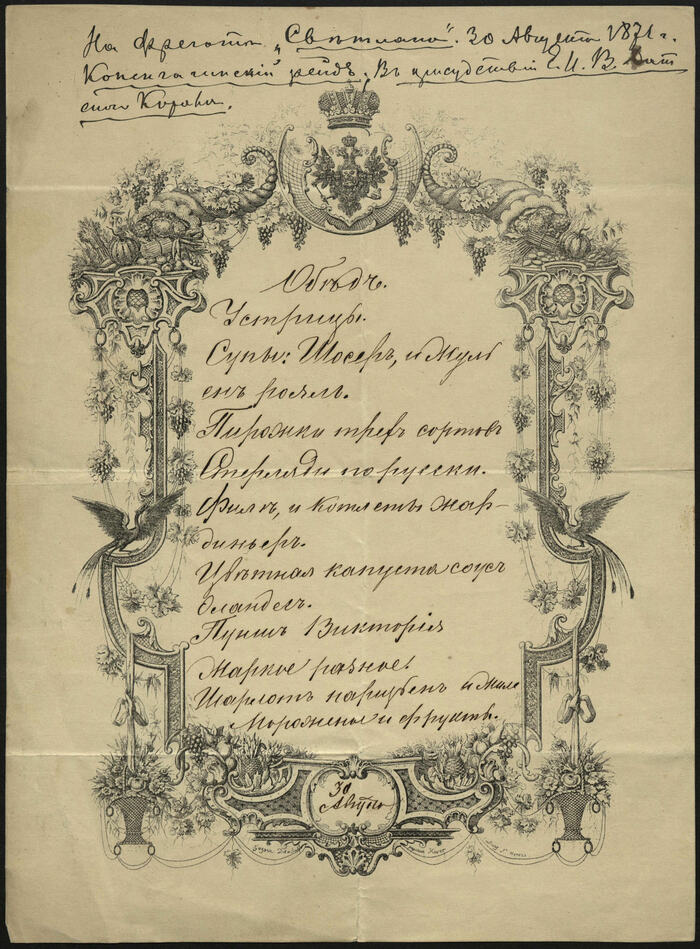 На фрегатѣ „Свѣтлана". 30 Августа 1871 г.
Копенгагенскій рейдъ. Въ присутствіи Е. И. В. Дат
скаго Короля.
Обѣдъ.
Устрицы.
Супы: Шосеръ, и Жуль
енъ роялъ.
Пирожки трехъ сортовъ
Стерляди по русски.
Филѣ, и котлеты жар-
диньеръ.
Цвѣтная капуста соусъ
оландесъ.
Пуншъ Викторія
Жаркое разное.
Шарлотъ паризьенъ и желе
Мороженое и фрукты.
30
Августа